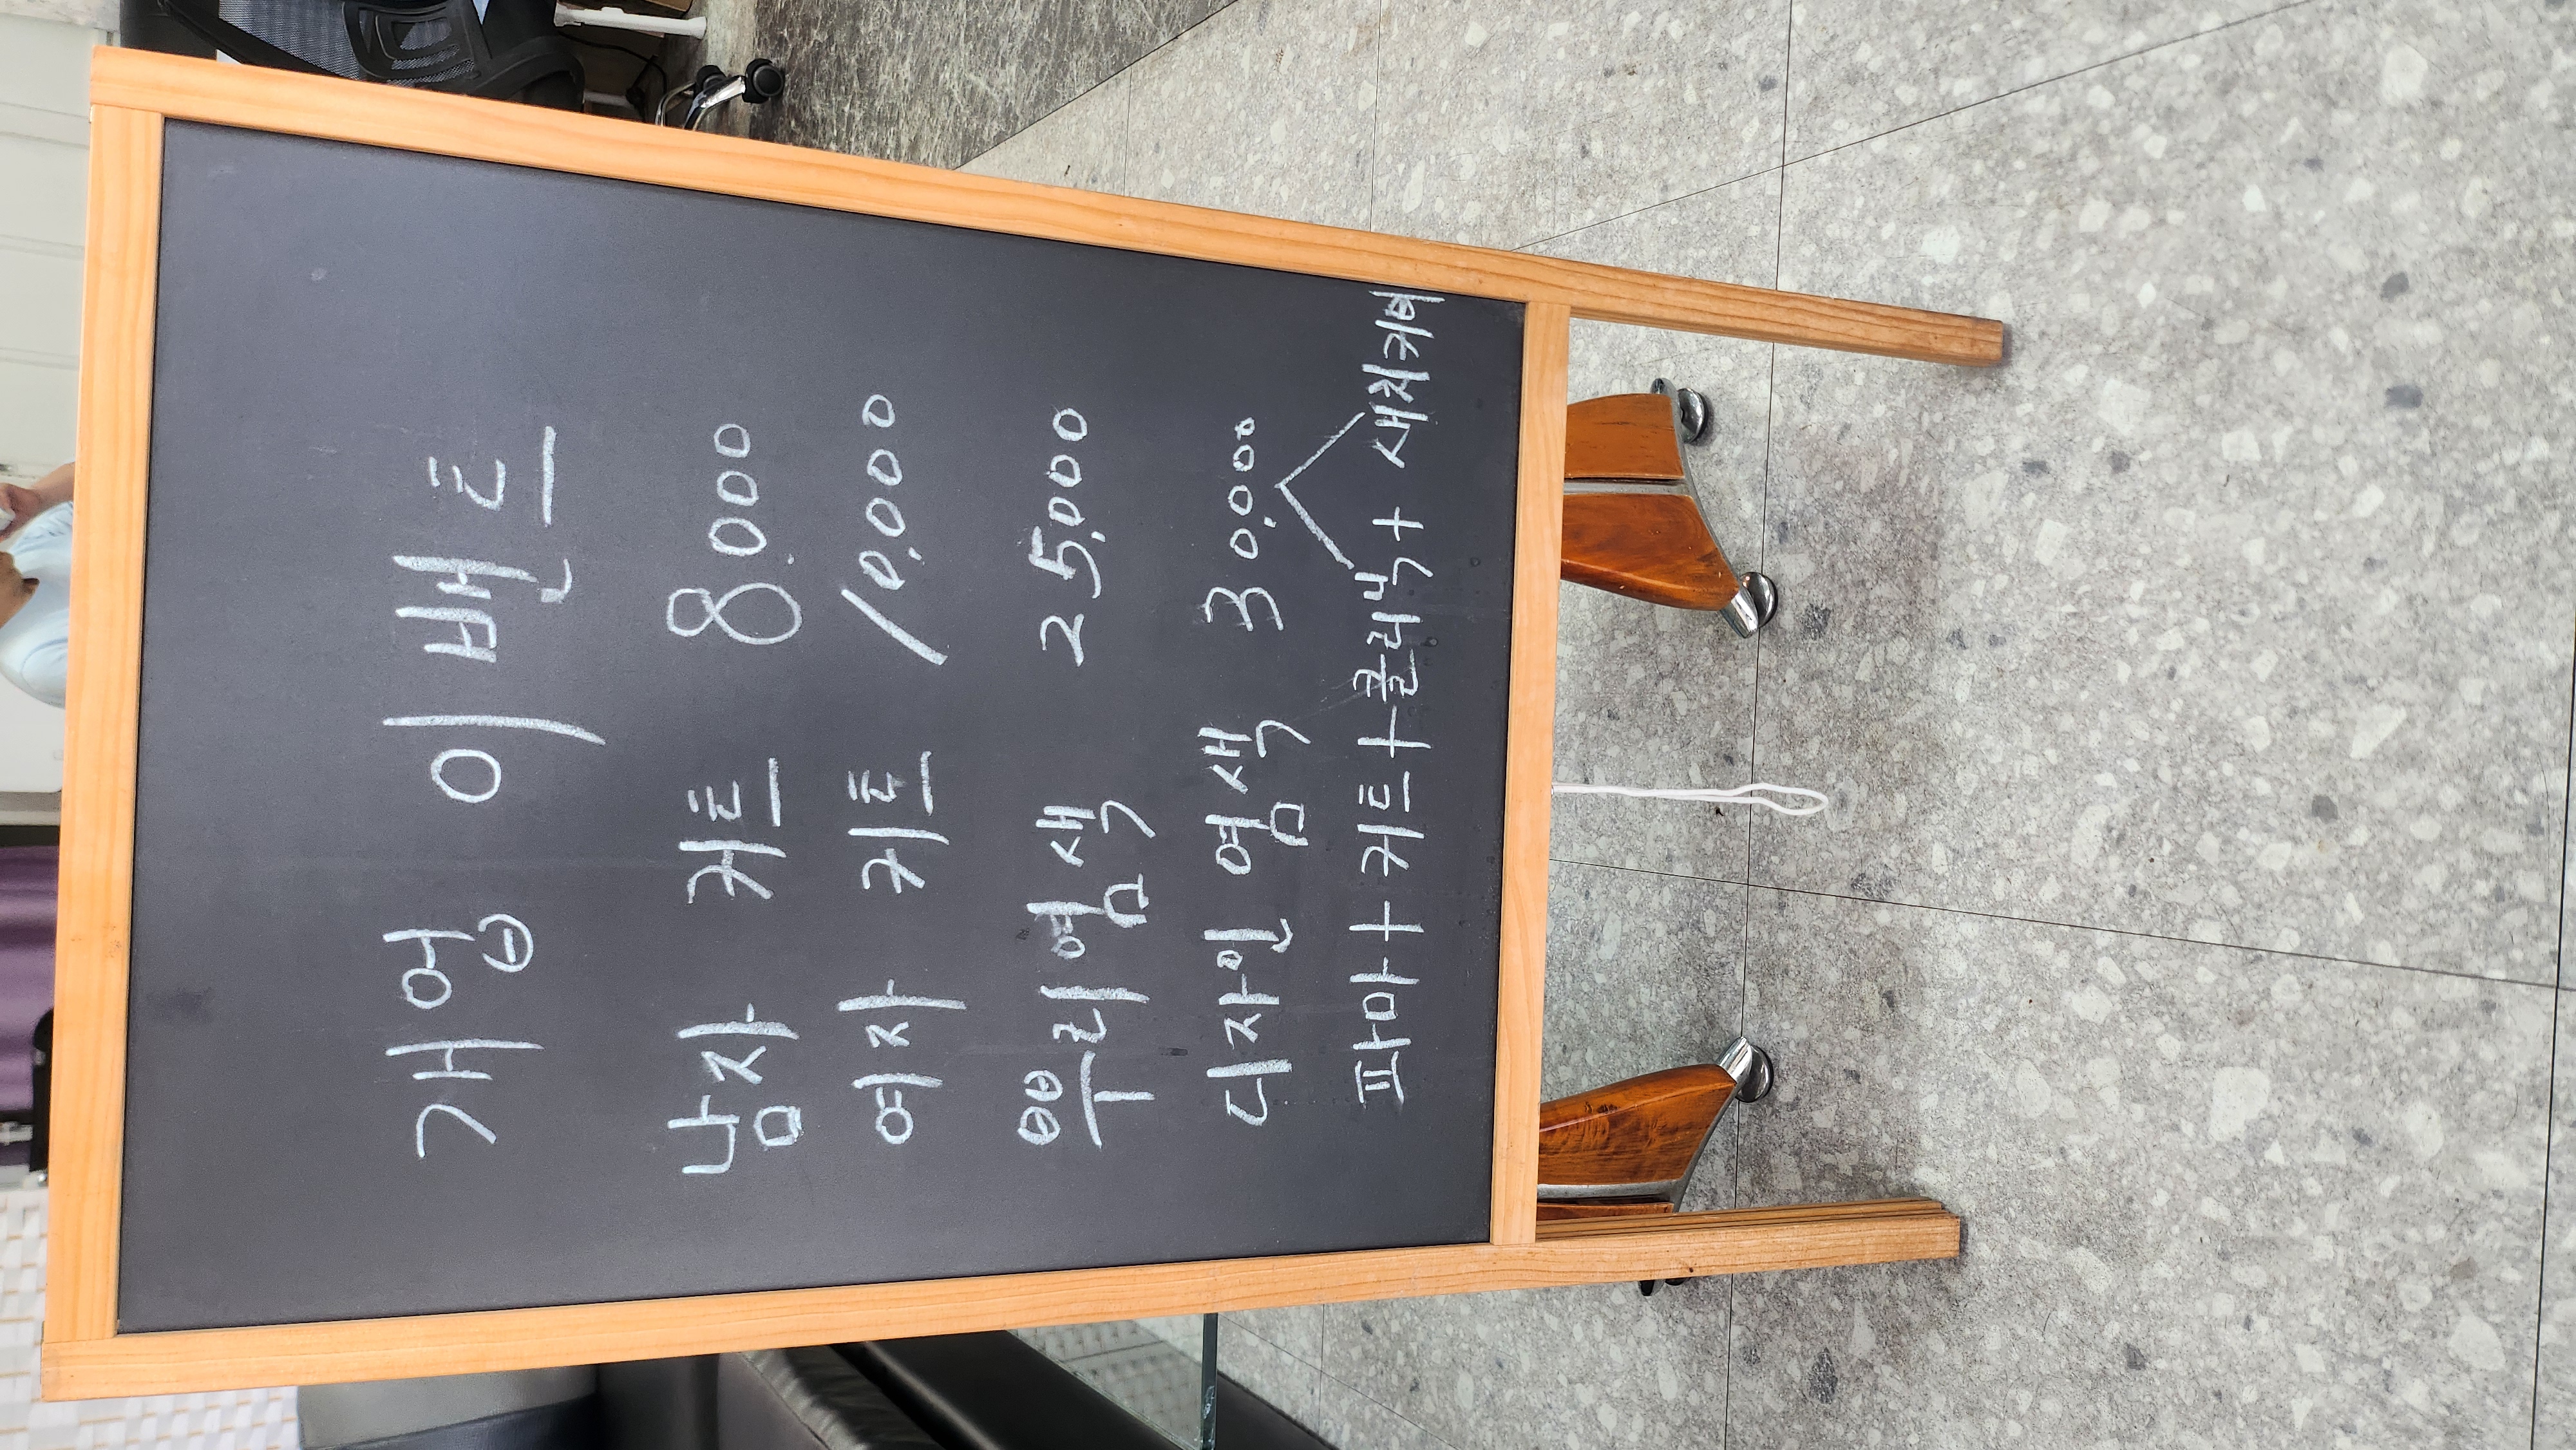 개업 이벤트
남자 커트 8,000
여자 커트 10,000
뿌리염색 25,000
디자인 염색 30,000
파마+커트+클리닉+새치커버